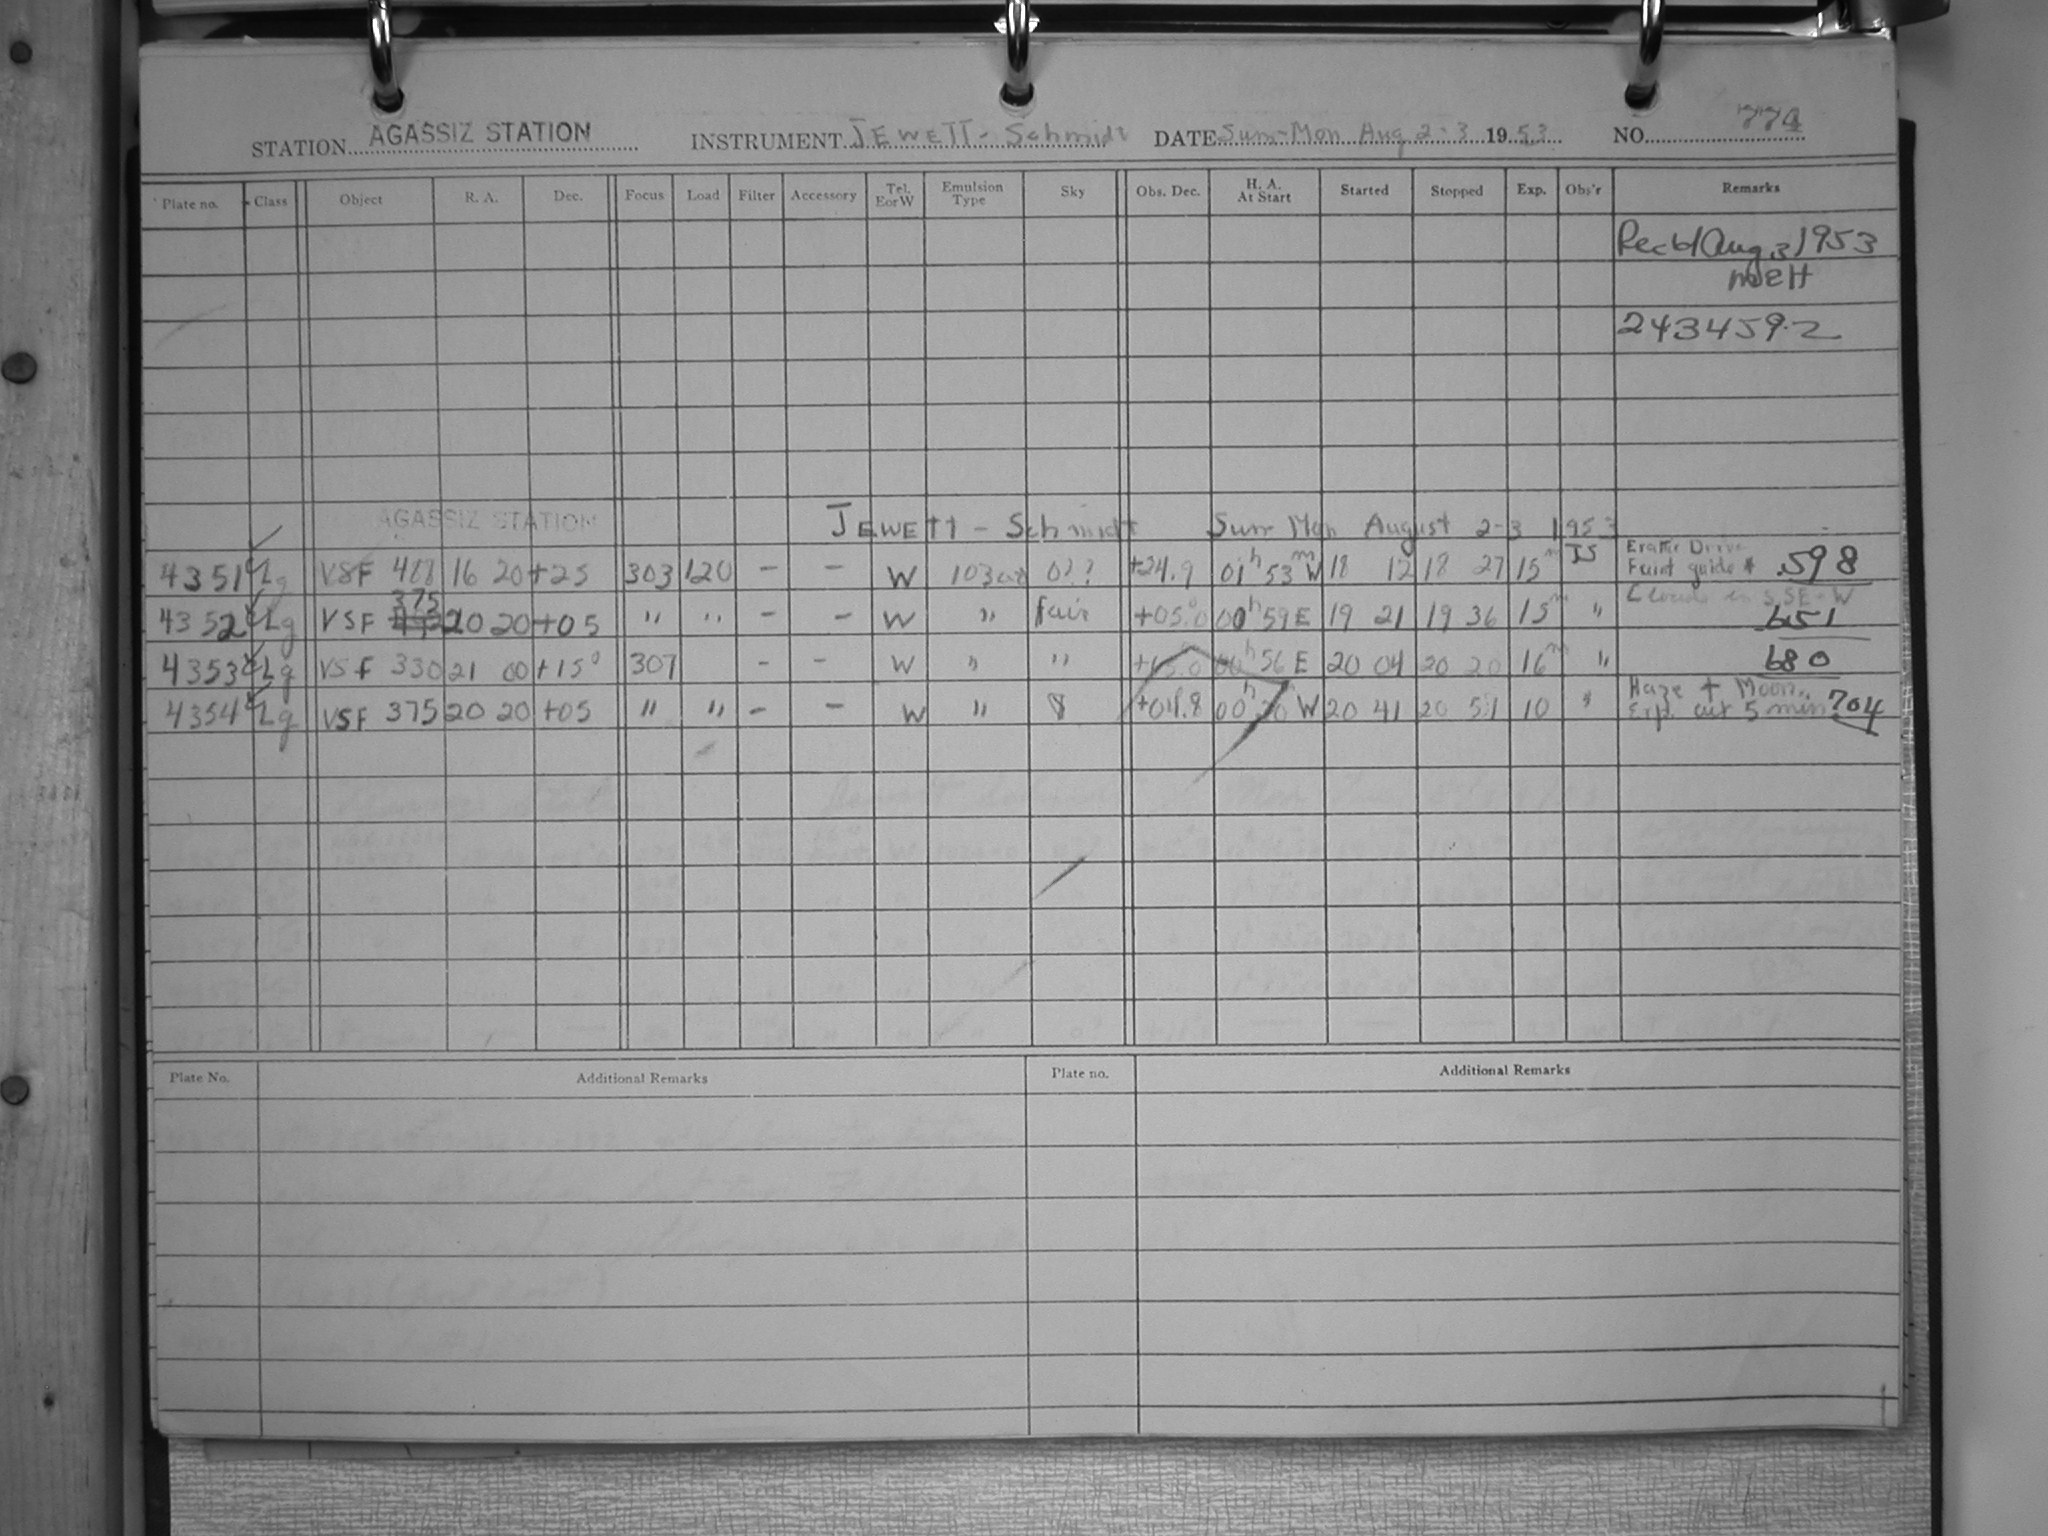 STATION AGASSIZ STATION INSTRUMENT JEWETT - Schmidt DATE Sun-Mon Aug 2-3 1953 NO. 774
Plate no. Class Object R. A. Dec. Focus Load Filter Accessory Tel. E or W Emulsion Type Sky Obs. Dec. H. A. At Start Started Stopped Exp. Obs'r Remarks
Rec'd Aug 3, 1953
2434592
AGASSIZ STATION JEWETT - Schmidt Sun-Mon August 2-3 1953
4351 Lg VSF 488 16 20 +25 303 120 - - W 103a0 0?? +24.9 01h 53m W 18 12 18 27 15m JS Eratic Drive Faint guide * .598
4352 Lg VSF 375 20 20 +05 " " - - W " fair +05.0 00h 59 E 19 21 19 36 15m " Clouds in SSE-W .651
4353 Lg VSF 330 21 00 +15° 307 - - W " " +15.0 00h 56 E 20 04 20 20 16m " 680
4354 Lg VSF 375 20 20 +05 " " - - W " +04.8 00h W 20 41 20 51 10 " Haze + Moon. Exp. cut 5 min 704
Plate No. Additional Remarks Plate no. Additional Remarks